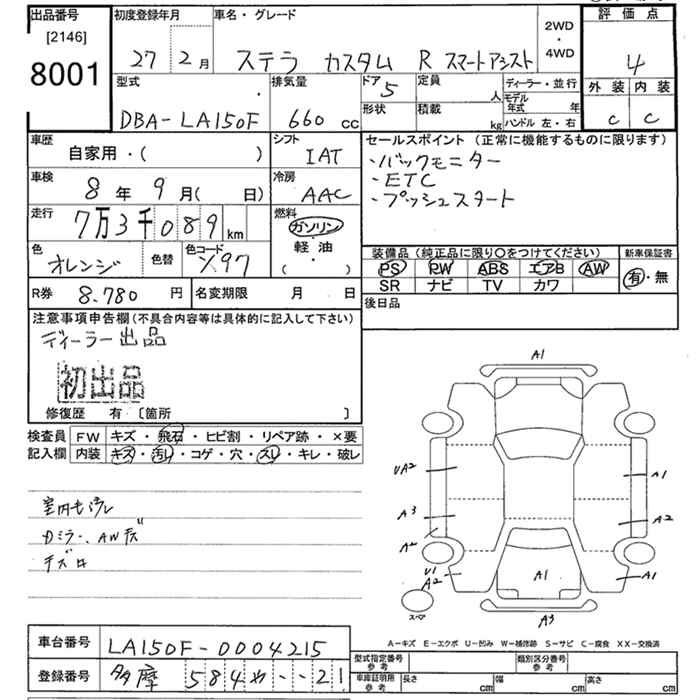 出品番号
[2146]
8001
初度登録年月
27 2月
車名・グレード
ステラ カスタム R スマートアシスト
2WD
・
4WD
評価点
4
型式
DBA-LA150F
排気量
660 cc
ドア 5
定員 人
ディーラー・並行
モデル年式 年
形状
積載 kg
ハンドル 左・右
外装 内装
C C
車歴
自家用・( )
シフト
IAT
セールスポイント (正常に機能するものに限ります)
・バックモニター
・ETC
・プッシュスタート
車検
8年 9月( 日)
冷房
AAC
走行
7万3千089km
燃料
ガソリン
軽油
( )
色
オレンジ
色替
色コード
X97
装備品 (純正品に限り○をつけてください)
新車保証書
PS PW ABS エアB AW
有・無
SR ナビ TV カワ
R券 8.780 円
名変期限 月 日
後日品
注意事項申告欄(不具合内容等は具体的に記入して下さい)
ディーラー出品
初出品
修復歴 有 〔箇所 〕
検査員
記入欄
FW キズ・飛石・ヒビ割・リペア跡・×要
内装 キズ・汚レ・コゲ・穴・スレ・キレ・破レ
A1
UA2
A1
A3
A2
A2
U1
A2
A1
A1
スペア
A3
A-キズ E-エクボ U-凹み W-補修跡 S-サビ C-腐食 XX-交換済
車台番号 LA150F-0004215
登録番号 多摩 584 や ・・21
型式指定番号
参考
類別区分番号
参考
車庫証明用
参考
長さ cm
幅 cm
高さ cm